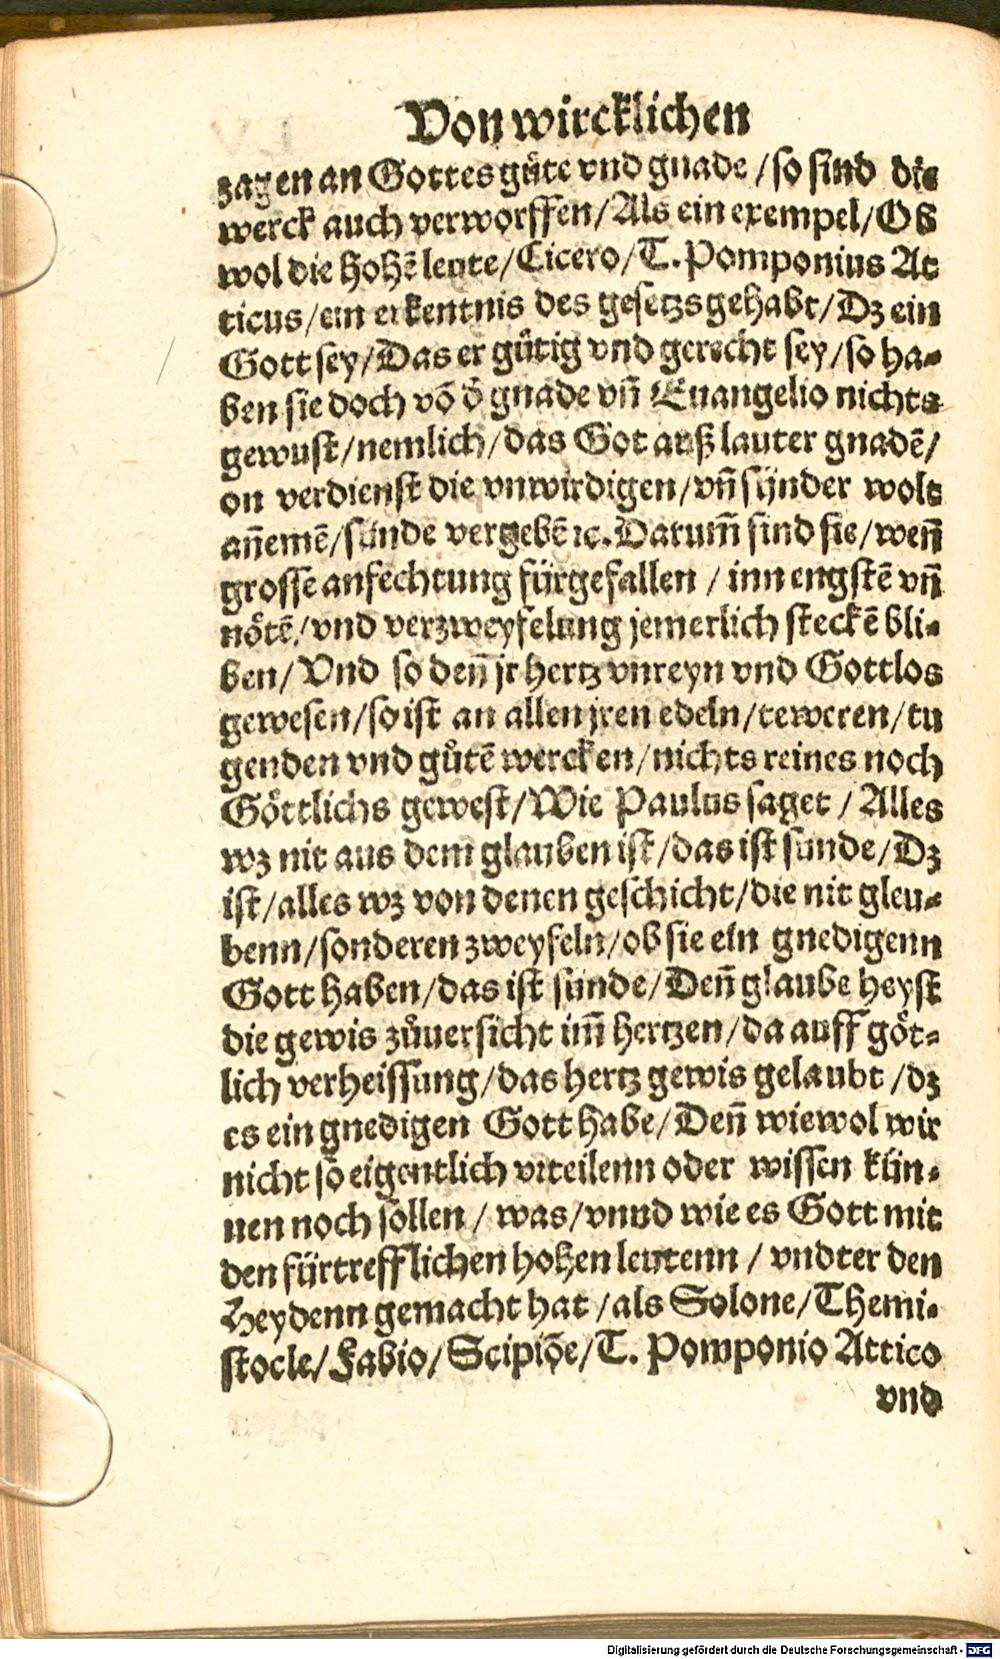 Von wircklichen
zagen an Gottes gůte vnd gnade /so sind die
werck auch verworffen/Als ein exempel/Ob
wol die hohẽ leute/Cicero/T. Pomponius At
ticus/ein erkentnis des gesetzs gehabt/Dz ein
Gott sey/Das er gůtig vnd gerecht sey/so ha⸗
ben sie doch võ ð gnade vñ Euangelio nichts
gewust/nemlich/das Got auß lauter gnadẽ/
on verdienst die vnwirdigen/vñ sünder wolt
añemẽ/sünde vergebẽ ꝛc. Darum̃ sind sie/weñ
grosse anfechtung fürgefallen / inn engstẽ vñ
nötẽ/vnd verzweyfelung jemerlich steckẽ bli⸗
ben/Vnd so deñ jr hertz vnreyn vnd Gottlos
gewesen/so ist an allen jren edeln/teweren/tu
genden vnd gůtẽ wercken/nichts reines noch
Göttlichs gewest/Wie Paulus saget / Alles
wz nit aus dem glauben ist/das ist sünde/Dz
ist/alles wz von denen geschicht/die nit gleu⸗
benn/sonderen zweyfeln/ob sie ein gnedigenn
Gott haben/das ist sünde/Deñ glaube heyst
die gewis zůuersicht im̃ hertzen/da auff göt⸗
lich verheissung/das hertz gewis gelaubt /dz
es ein gnedigen Gott habe/Deñ wiewol wir
nicht so eigentlich vrteilenn oder wissen kün⸗
nen noch sollen / was/vnnd wie es Gott mit
den fürtrefflichen hohen leutenn / vndter den
Heydenn gemacht hat /als Solone/Themi⸗
stocle/Fabio/Scipiõe/T. Pomponio Attico
vnd
Digitalisierung gefördert durch die Deutsche Forschungsgemeinschaft - DFG